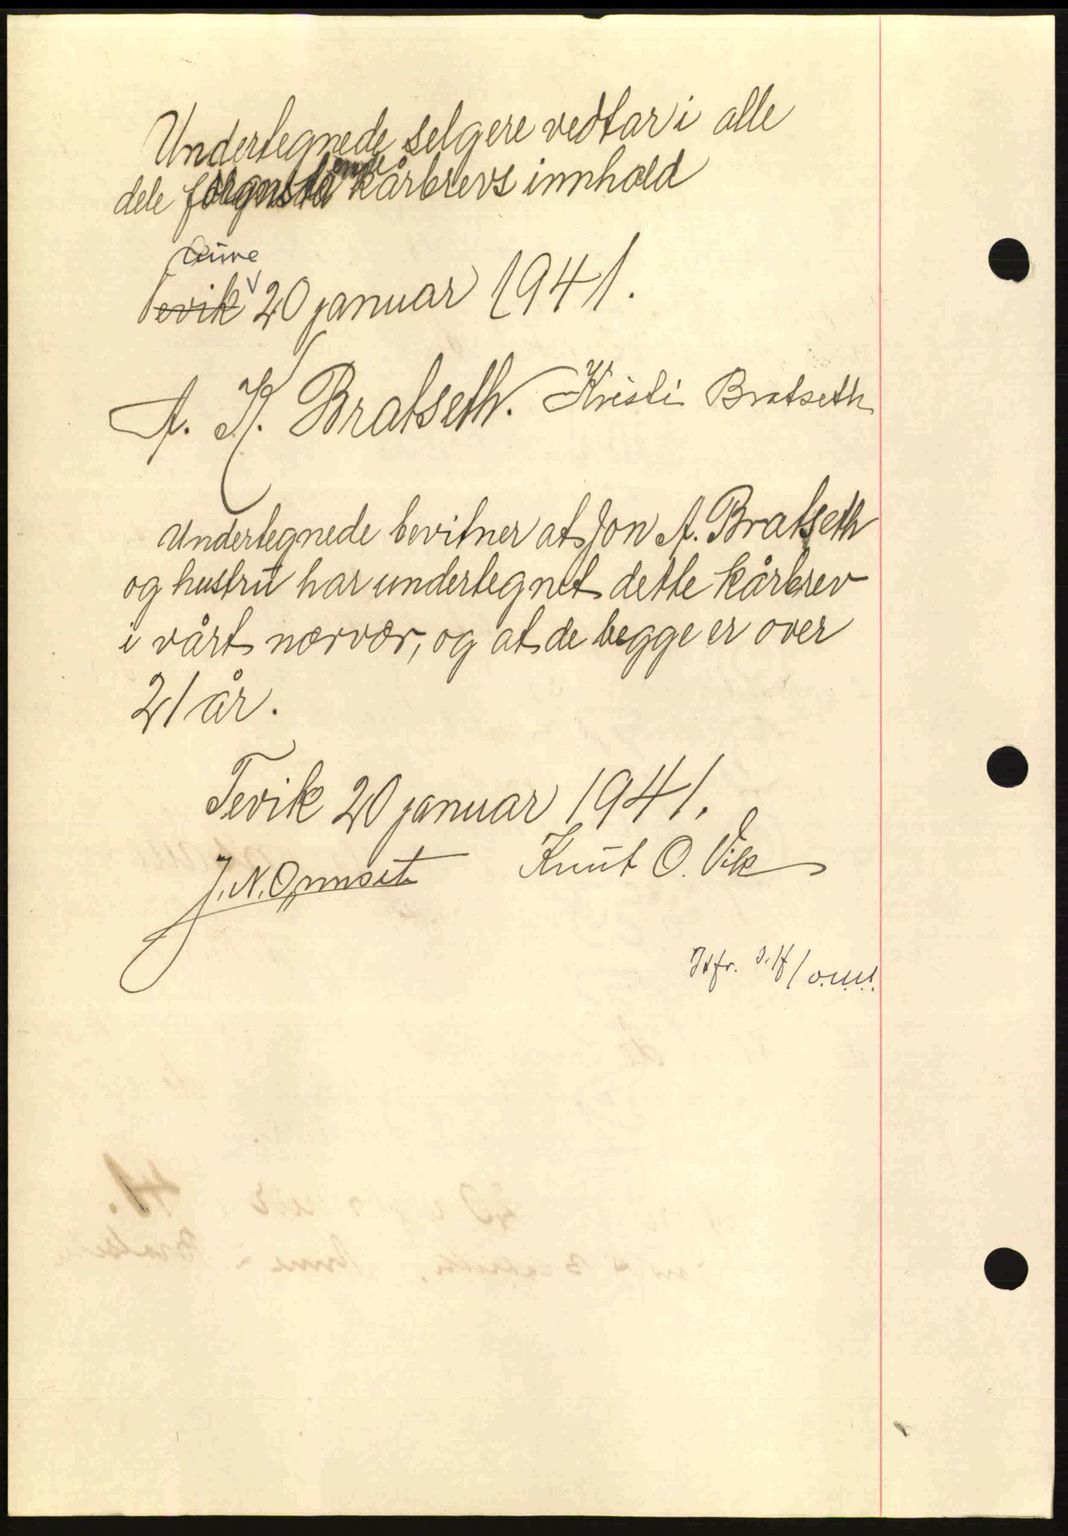 Undertegnede selgere vedtar i alle
dele foranstående kårbrevs innhold
Aure
Tevik 20 januar 1941.
A. K. Bratseth. Kristi Bratseth
Undertegnede bevitner at Jon A. Bratseth
og hustru har undertegnet dette kårbrev
i vårt nærvær, og at de begge er over
21 år.
Tevik 20 januar 1941.
J. N. Opmset Knut O. Vik